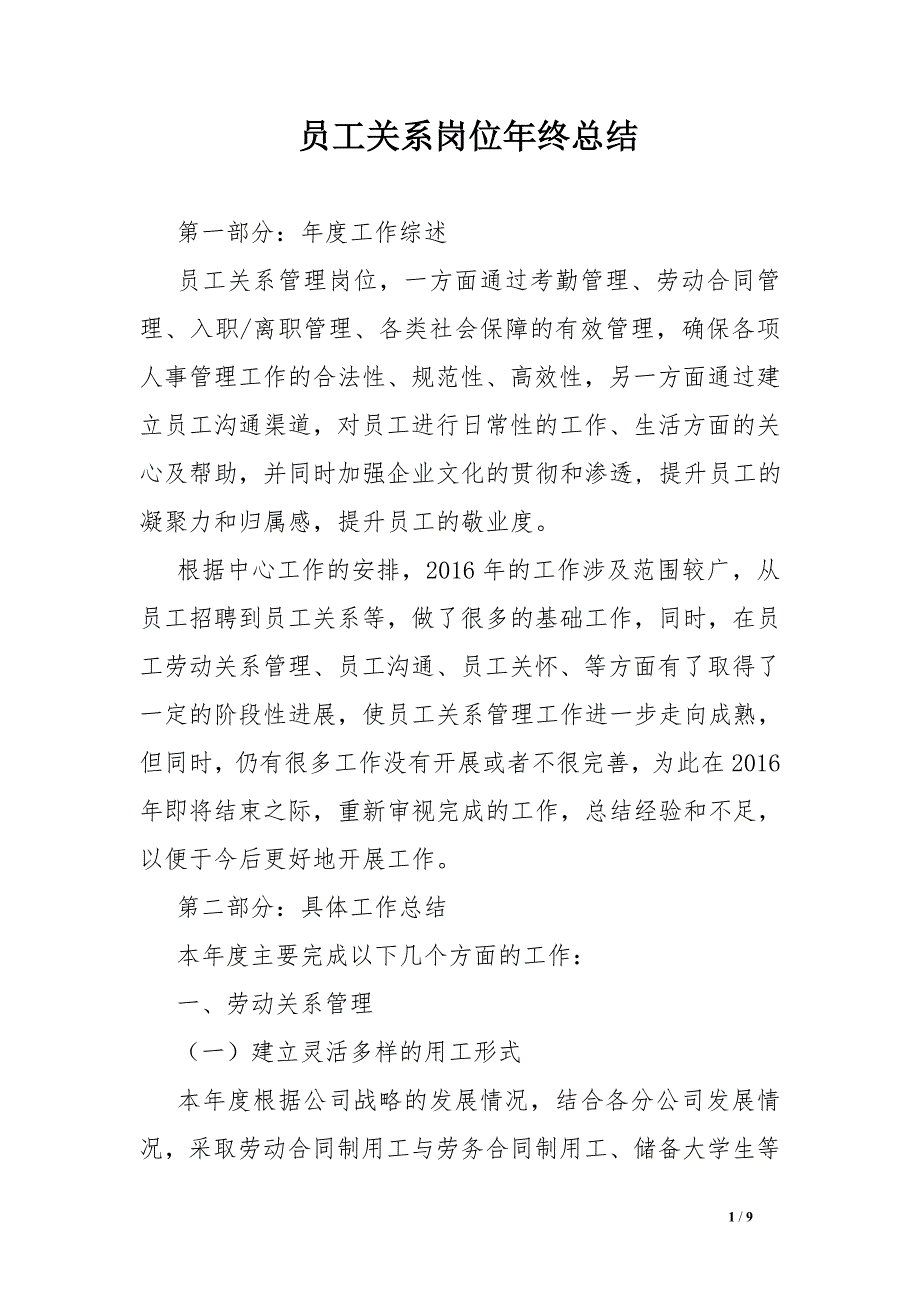 员工关系岗位年终总结
第一部分：年度工作综述
员工关系管理岗位，一方面通过考勤管理、劳动合同管
理、入职/离职管理、各类社会保障的有效管理，确保各项
人事管理工作的合法性、规范性、高效性，另一方面通过建
立员工沟通渠道，对员工进行日常性的工作、生活方面的关
心及帮助，并同时加强企业文化的贯彻和渗透，提升员工的
凝聚力和归属感，提升员工的敬业度。
根据中心工作的安排，2016 年的工作涉及范围较广，从
员工招聘到员工关系等，做了很多的基础工作，同时，在员
工劳动关系管理、员工沟通、员工关怀、等方面有了取得了
一定的阶段性进展，使员工关系管理工作进一步走向成熟，
但同时，仍有很多工作没有开展或者不很完善，为此在 2016
年即将结束之际，重新审视完成的工作，总结经验和不足，
以便于今后更好地开展工作。
第二部分：具体工作总结
本年度主要完成以下几个方面的工作：
一、劳动关系管理
（一）建立灵活多样的用工形式
本年度根据公司战略的发展情况，结合各分公司发展情
况，采取劳动合同制用工与劳务合同制用工、储备大学生等
1 / 9